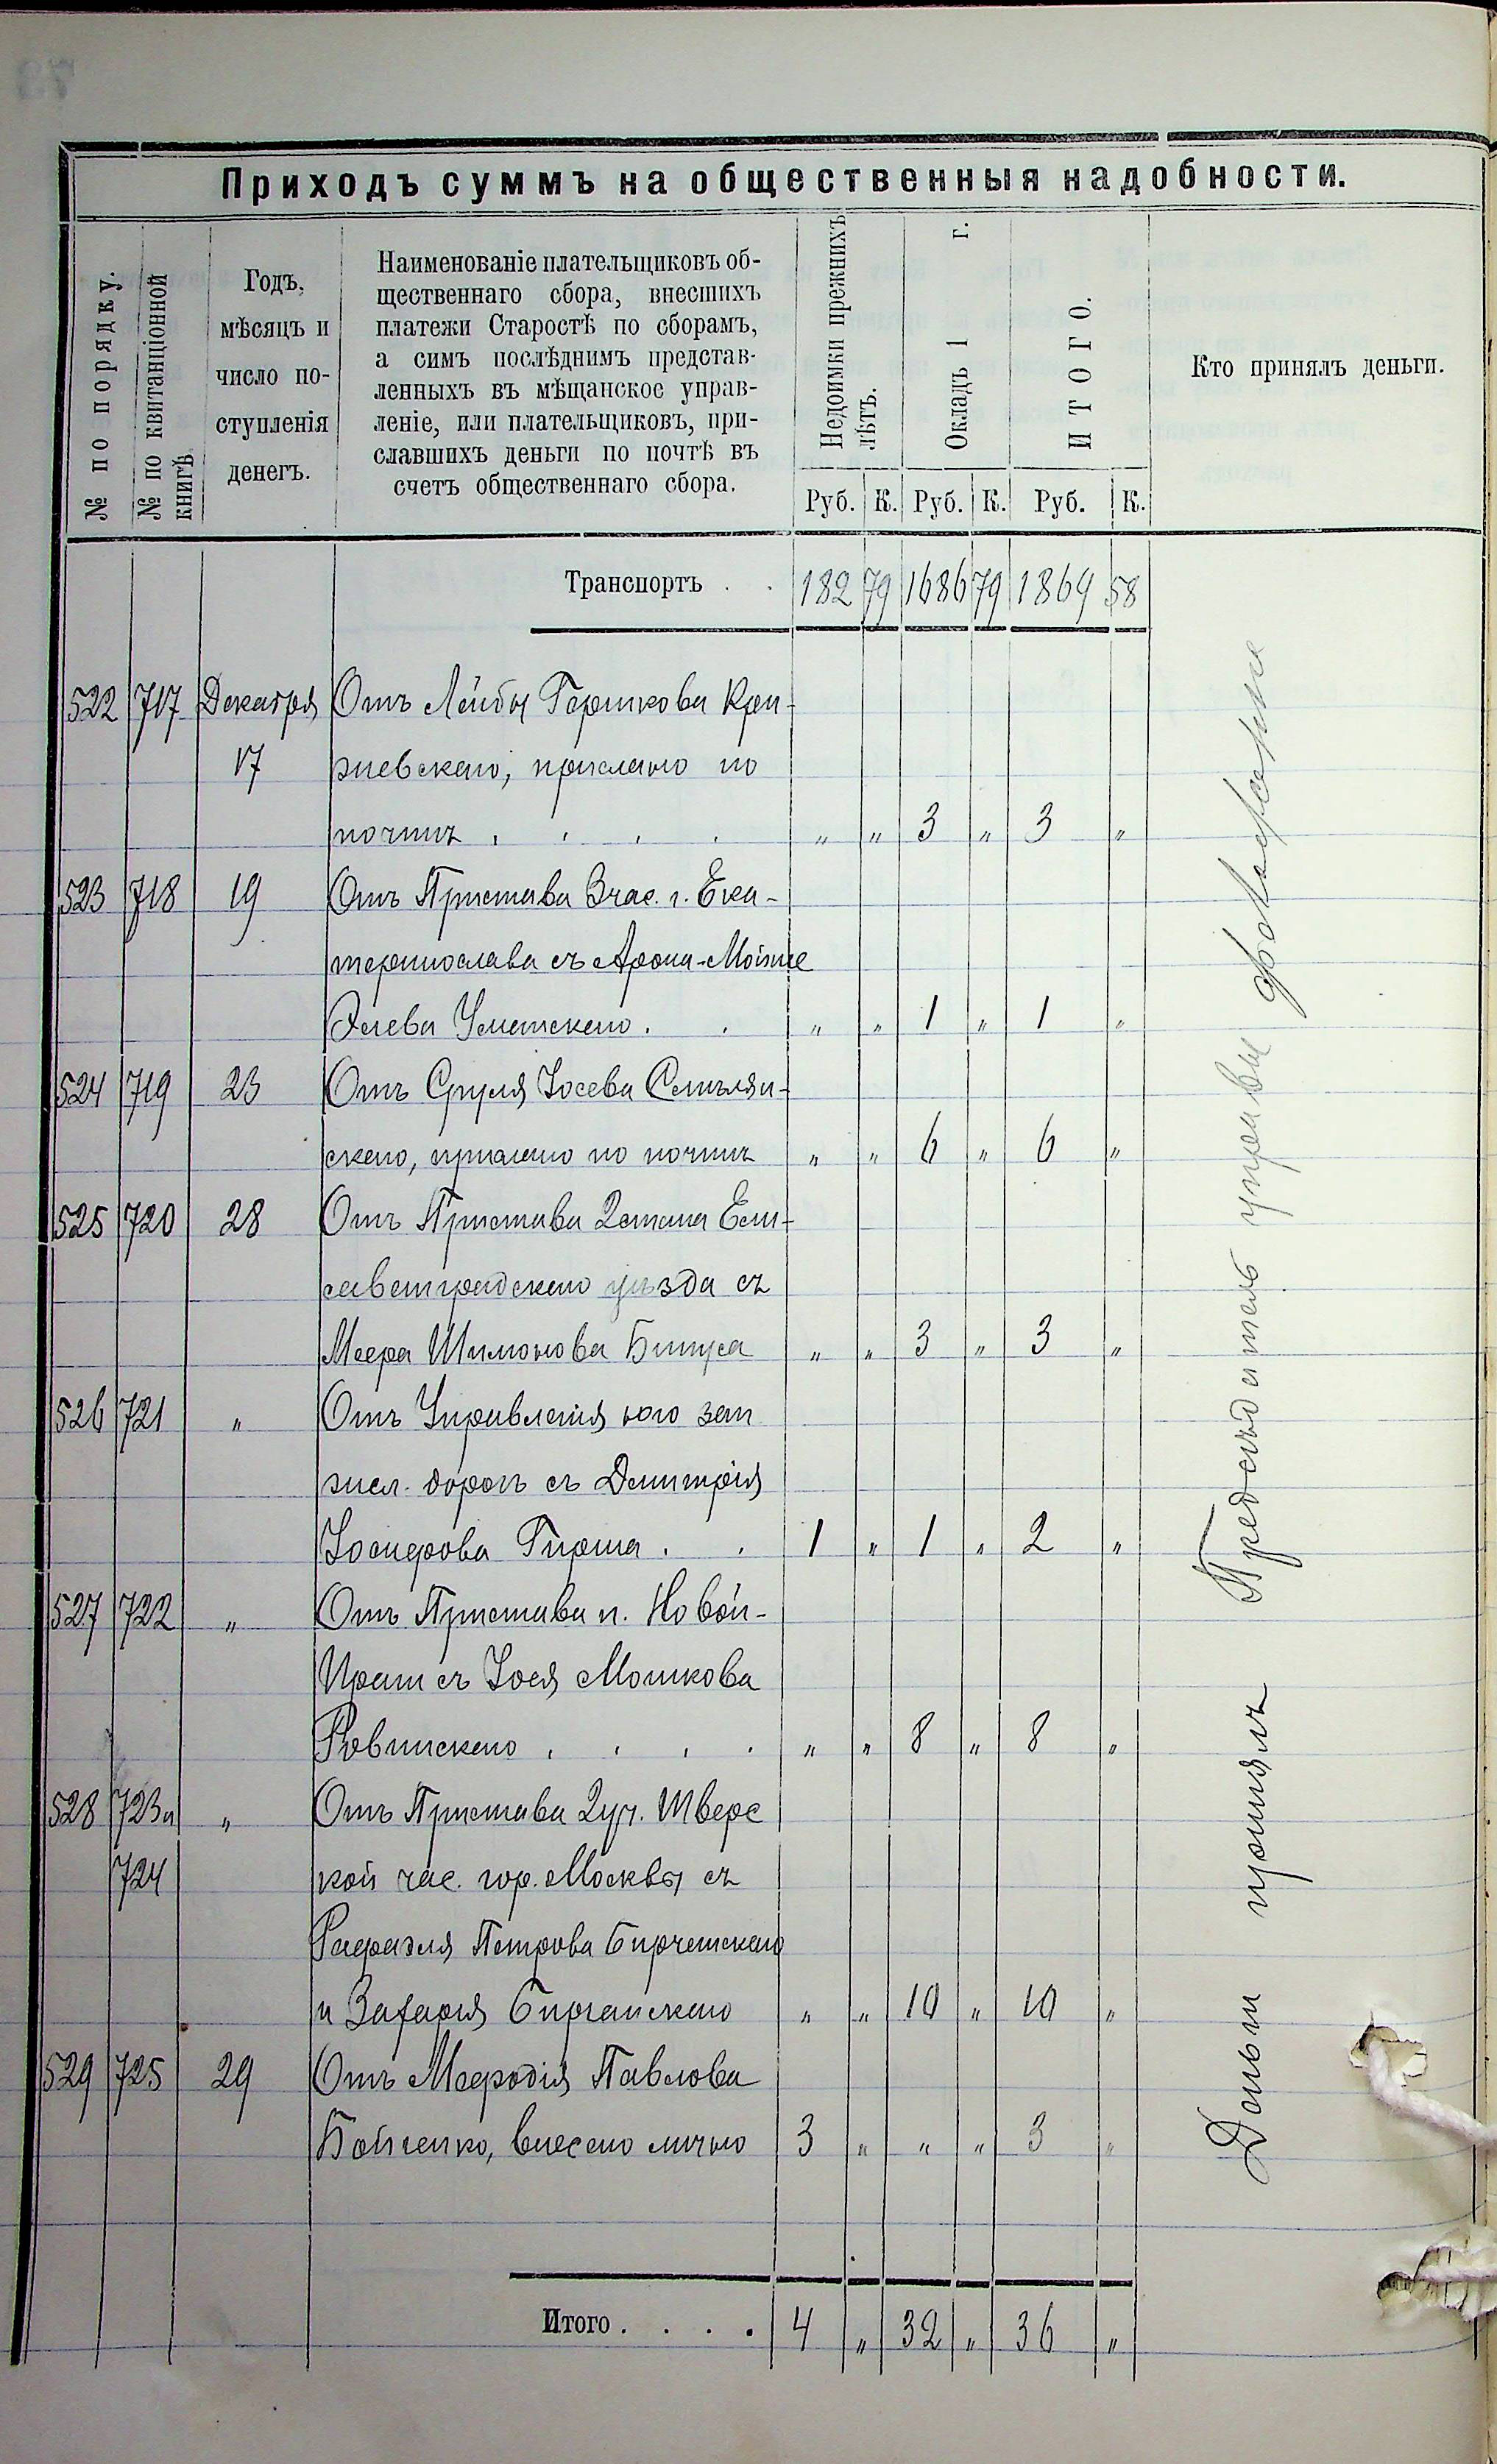 Приходъ суммъ на общественныя надобности.
№ по порядку.
№ по квитанціонной
книгѣ.
Годъ,
мѣсяцъ и
число по-
ступленія
денегъ.
Наименованіе плательщиковъ об-
щественнаго сбора, внесшихъ
платежи Старостѣ по сборамъ,
а симъ послѣднимъ представ-
ленныхъ въ мѣщанское управ-
леніе, или плательщиковъ, при-
славшихъ деньги по почтѣ въ
счетъ общественнаго сбора.
Недоимки прежнихъ
лѣтъ.
Окладъ 1 г.
ИТОГО.
Кто принялъ деньги.
Руб. К. Руб. К. Руб. К.
Транспортъ . . 182 79 1686 79 1869 58
522 717 Декабря Отъ Лейбы Гершкова Кри-
17 жевскаго, прислано по
почтѣ . . . . " " 3 " 3 "
523 718 19 Отъ Пристава 3 час. г. Ека-
теринослава съ Арона-Мойше
Элева Уманскаго . . " " 1 " 1 "
524 719 23 Отъ Сруля Іосева Смилян-
скаго, прислано по почтѣ " " 6 " 6 "
525 720 28 Отъ Пристава 2 стана Ели-
саветградскаго уѣзда съ
Меера Шимонова " " 3 " 3 "
526 721 " Отъ Управленія юго зап
жел. дорогъ съ Дмитрія
Гирша . . 1 " 1 " 2 "
527 722 " Отъ Пристава п. Новой-
Праги съ Іося Мошкова
Ровинскаго . . . . " " 8 " 8 "
528 723 и " Отъ Пристава 2 уч. Тверс
724 кой час. гор. Москвы съ
Рафаэля Петрова
и Захарія " " 10 " 10 "
529 725 29 Отъ Мефодія Павлова
Бойченко, внесено лично 3 " " " 3 "
Итого . . . . 4 " 32 " 36 "
Деньги принялъ Предсѣдатель управы